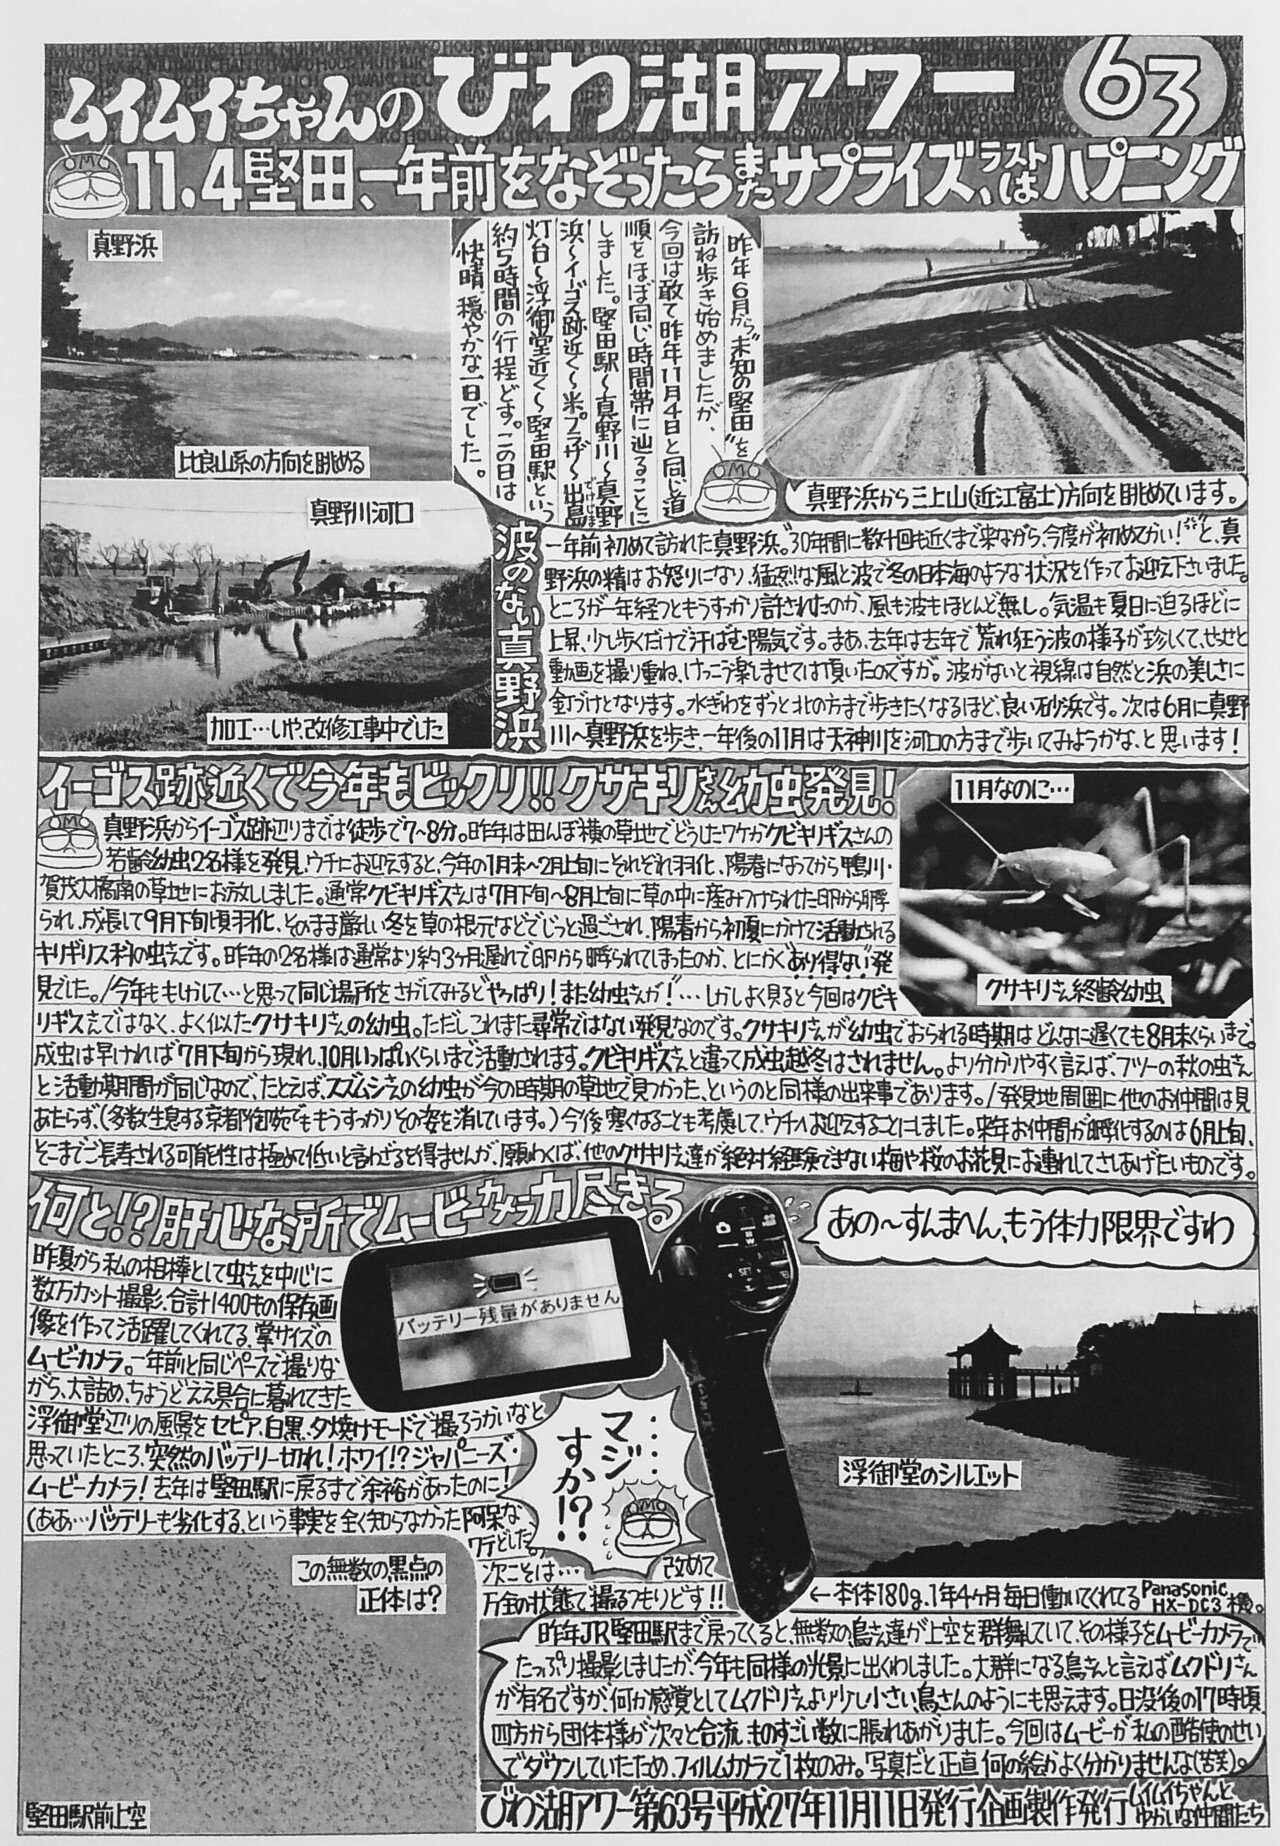 ムイムイちゃんのびわ湖アワー 63
11.4堅田、一年前をなぞったらまたサプライズ、ラストはハプニング
真野浜
比良山系の方向を眺める
昨年6月から“未知の堅田”を
訪ね歩き始めましたが、
今回は敢て昨年11月4日と同じ道
順をほぼ同じ時間帯に辿ることに
しました。堅田駅〜真野川〜真野
浜〜イーゴス跡近く〜米プラザ〜出島
灯台〜浮御堂近く〜堅田駅という
約5時間の行程どす。この日は
快晴、穏やかな一日でした。
真野浜から三上山(近江富士)方向を眺めています。
真野川河口
加工…いや、改修工事中でした
波のない真野浜
一年前初めて訪れた真野浜。“30年間に数十回も近くまで来ながら、今度が初めてかい!”と、真
野浜の精はお怒りになり、猛烈な風と波で冬の日本海のような状況を作ってお迎え下さいました。
ところが一年経つともうすっかり許されたのか、風も波もほとんど無し。気温も夏日に迫るほどに
上昇、少し歩くだけで汗ばむ陽気です。まあ、去年は去年で荒れ狂う波の様子が珍しくて、せせと
動画を撮り重ね、けっこう楽しませては頂いたのですが。波がないと視線は自然と浜の美しさに
釘づけとなります。水ぎわをずっと北の方まで歩きたくなるほど、良い砂浜です。次は6月に真野
川〜真野浜を歩き、一年後の11月は天神川を河口の方まで歩いてみようかな、と思います!
イーゴス跡近くで今年もビックリ!!クサキリさん幼虫発見!
11月なのに…
クサキリさん終齢幼虫
真野浜からイーゴス跡辺りまでは徒歩で7〜8分。昨年は田んぼ横の草地でどうしたワケかクビキリギスさんの
若齢幼虫2名様を発見、ウチにお迎えすると、今年の1月末〜2月上旬にそれぞれ羽化、陽春になってから鴨川・
賀茂大橋南の草地にお放ししました。通常クビキリギスさんは7月下旬〜8月上旬に草の中に産みつけられた卵から孵
られ、成長して9月下旬頃羽化、そのまま厳しい冬を草の根元などでじっと過ごされ、陽春から初夏にかけて活動される
キリギリス科の虫さんです。昨年の2名様は通常より約3ヶ月遅れで卵から孵られてしまったのか、とにかく“あり得ない”発
見でした。/今年ももしかして…と思って同じ場所をさがしてみると“やっぱり!また幼虫さんが!”…しかしよく見ると今回はクビキ
リギスさんではなく、よく似たクサキリさんの幼虫。ただしこれまた尋常ではない発見なのです。クサキリさんが幼虫でおられる時期はどんなに遅くても8月末くらいまで。
成虫は早ければ7月下旬から現れ、10月いっぱいくらいまで活動されます。クビキリギスさんと違って成虫越冬はされません。より分かりやすく言えば、フツーの秋の虫さん
と活動期間が同じなので、たとえば、スズムシさんの幼虫が今の時期の草地で見つかった、というのと同様の出来事であります。/発見地周囲に他のお仲間は見
あたらず、(多数生息する京都御苑でももうすっかりその姿を消しています。)今後寒くなることも考慮して、ウチへお迎えすることにしました。来年お仲間が孵化するのは6月上旬、
そこまでご長寿される可能性は極めて低いと言わざるを得ませんが、願わくば、他のクサキリさん達が絶対経験できない梅や桜のお花見にお連れしてさしあげたいものです。
何と!?肝心な所でムービーカメラ力尽きる
あの〜すんまへん、もう体力限界ですわ
バッテリー残量がありません
昨夏から私の相棒として虫さんを中心に
数万カット撮影、合計1400もの保存画
像を作って活躍してくれてる、掌サイズの
ムービーカメラ。一年前と同じペースで撮りな
がら、大詰め、ちょうどええ具合に暮れてきた
浮御堂辺りの風景をセピア、白黒、夕焼けモードで撮ろうかいなと
思っていたところ、突然のバッテリー切れ!ホワイ!?ジャパニーズ・
ムービーカメラ!去年は堅田駅に戻るまで余裕があったのに!
(ああ…バッテリーも劣化する、という事実を全く知らなかった阿呆な
ワテどした。)
次こそは…改めて
万全の状態で撮るつもりどす!!
……マジすか!?
浮御堂のシルエット
←本体180g、1年4ヶ月毎日働いてくれてるPanasonic HX-DC3機。
この無数の黒点の
正体は?
堅田駅前上空
昨年JR堅田駅まで戻ってくると、無数の鳥さん達が上空を群舞していて、その様子をムービーカメラで
たっぷり撮影しましたが、今年も同様の光景に出くわしました。大群になる鳥さんと言えばムクドリさん
が有名ですが、何か感覚としてムクドリさんより少し小さい鳥さんのようにも思えます。日没後の17時頃、
四方から団体様が次々と合流、ものすごい数に膨れあがりました。今回はムービーが私の酷使のせい
でダウンしていたため、フィルムカメラで1枚のみ。写真だと正直何の絵かよく分かりませんな(苦笑)。
びわ湖アワー第63号平成27年11月11日発行 企画製作発行ムイムイちゃんとゆかいな仲間たち